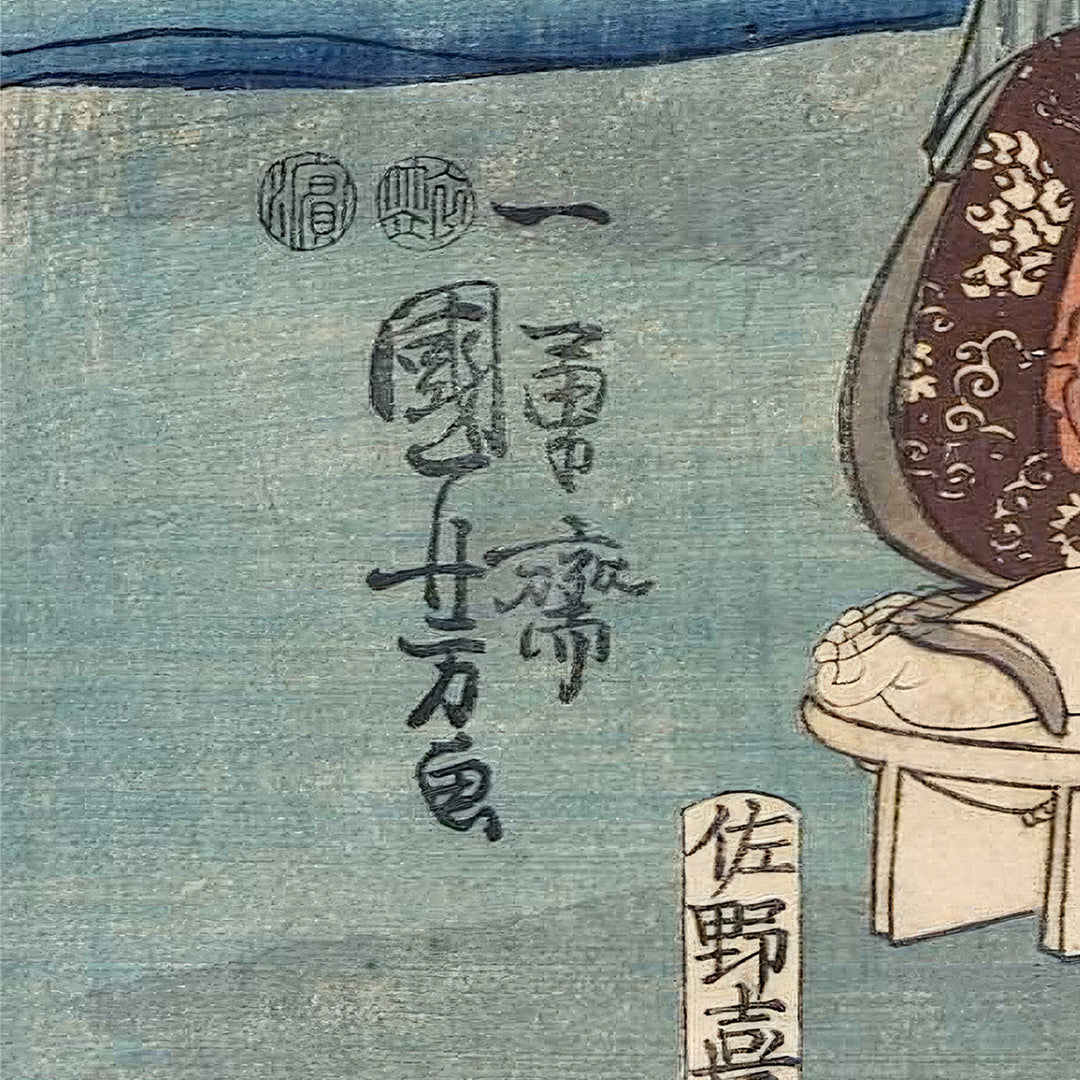 一勇齋
國芳画
濱
佐野喜